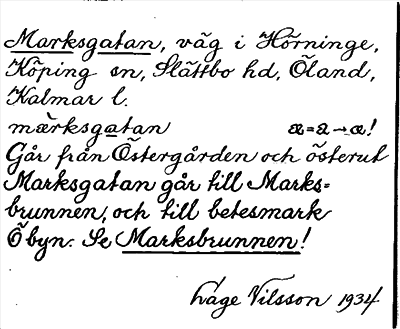 Marksgatan, väg i Hörninge,
Köping sn, Slättbo hd, Öland,
Kalmar l.
mær̀ksgatan a=a→æ!
Går från Östergården och österut
Marksgatan går till Marks=
brunnen, och till betesmark
Ö byn. Se Marksbrunnen!
Åage Nilsson 1934